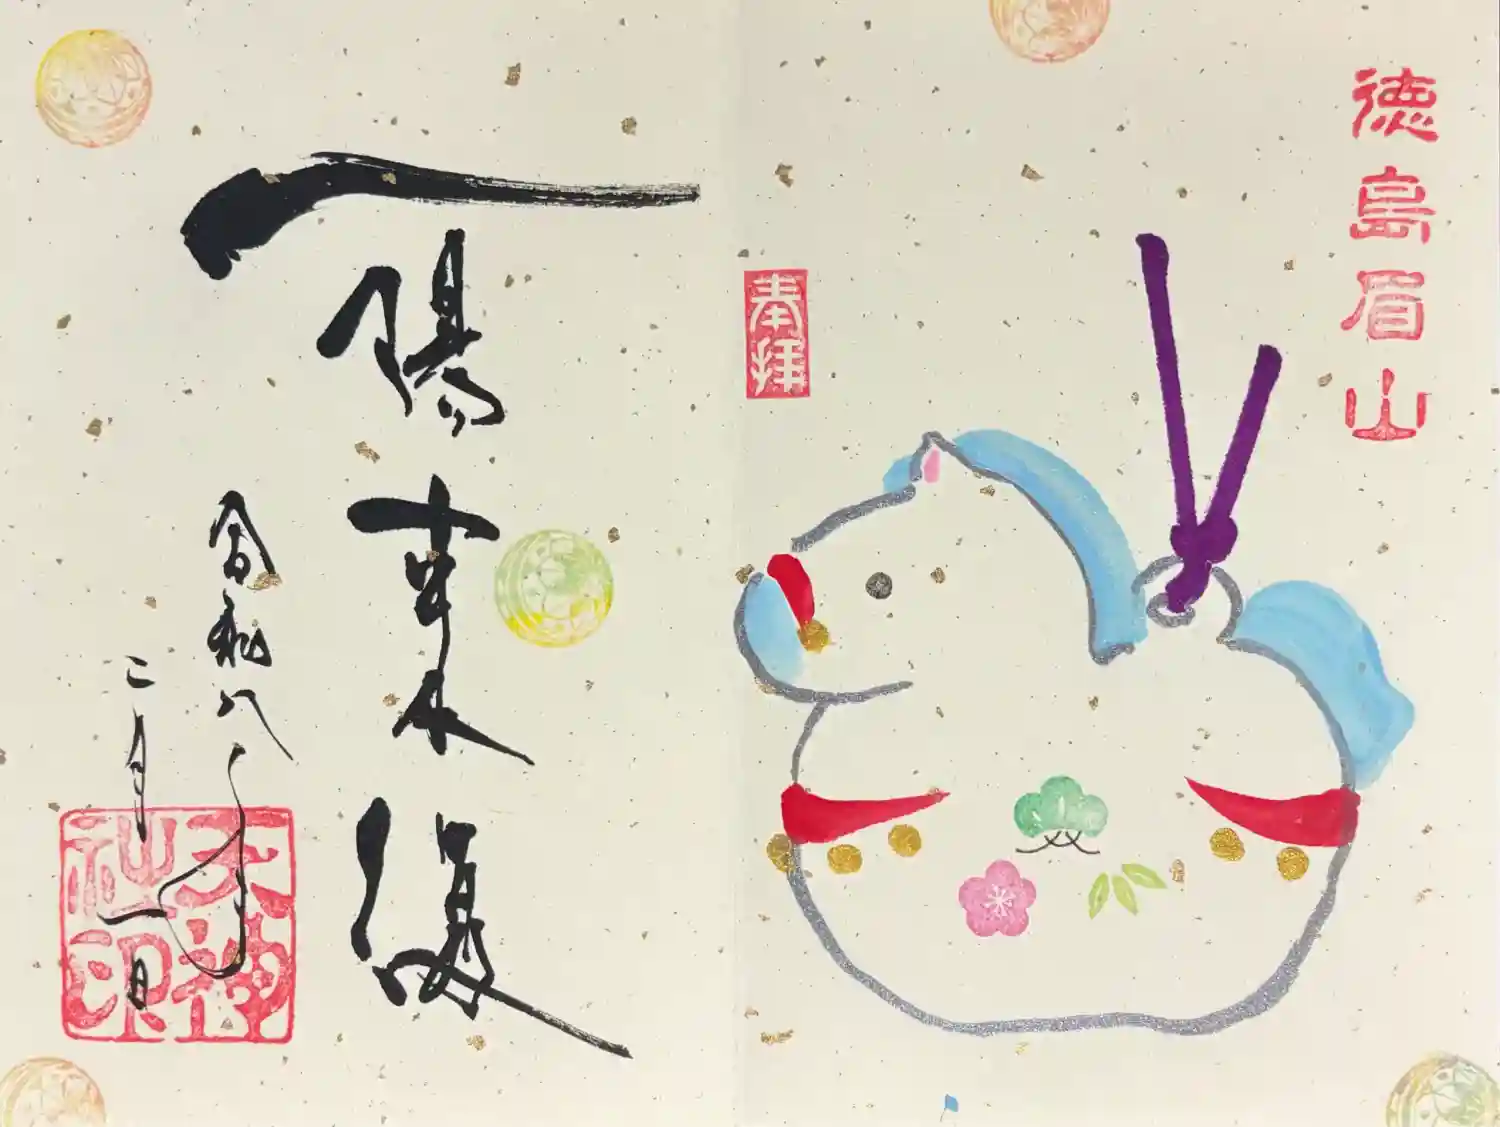 徳島眉山
奉拝
一陽来復
令和八年
二月一日
天神社印